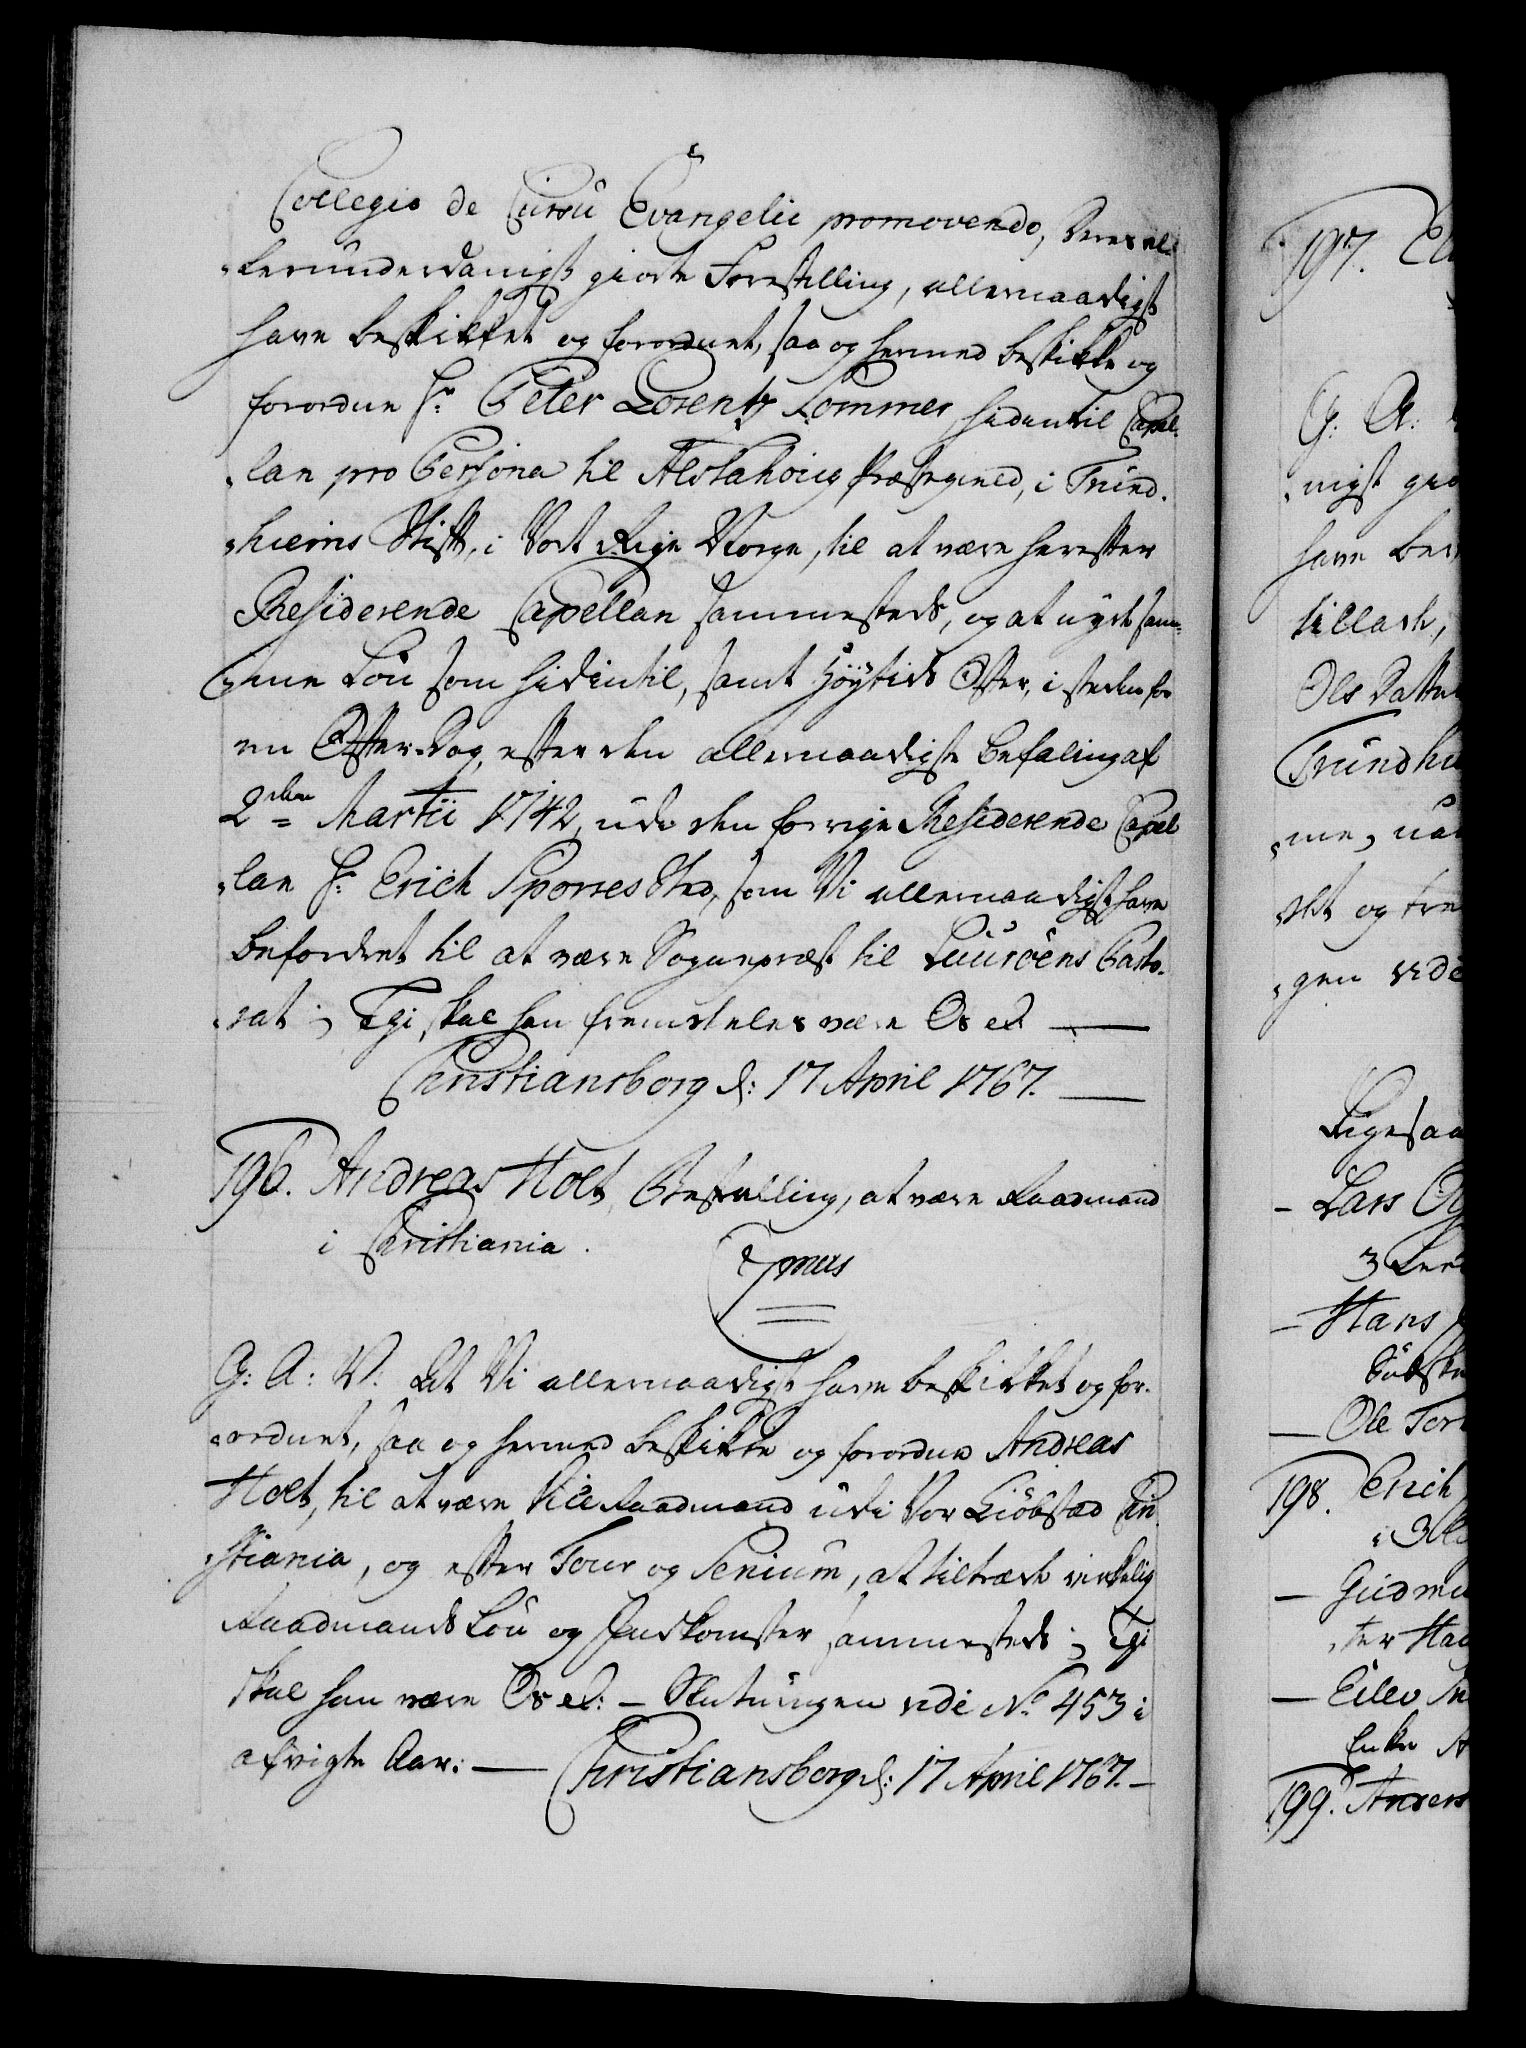 Collegio de Cursu Evangelii promovendo, deres al-
lerunderdanigst giorte Forestilling, allernaadigst
have beskikket og forordnet, saa og hermed beskikke og
forordne Hr. Peter Lorentz Sommer, hidentil Capel-
lan pro Persona til Alstahoug Præstegield, i Trund-
hiems Stift, i Vort Rige Norge, til at være herefter
Residerende Capellan sammesteds, og at nyde sam-
me Løn som hidintil, samt Høytids Offer, i steden for
en Offer-Dag, efter den allernaadigste Befaling af
2den Martii 1742, udi den forrige Residerende Capel-
lan Hr. Erich Sporres Sted, som Vi allernaadigst have
befordret til at være Sognepræst til Luurøens Pasto-
rat; Thi skal han fremdeles være Os etc.
Christiansborg d: 17 April 1767.
196. Andreas Holt, Bestalling, at være Raadmand
i Christiania.
G: A: V: At Vi allernaadigst have beskikket og for-
ordnet, saa og hermed beskikke og forordne Andreas
Holt, til at være Vice Raadmand udi Vor Kiøbstad Chri-
stiania, og efter Tour og Senium, at tiltræde virkelig
Raadmands Løn og Indkomster sammesteds; Thi
skal han være Os etc: – Slutningen vide No. 453 i
afvigte Aar: — Christiansborg d: 17 April 1767. –
197.
G: A:
nigst gio
have be
tillade,
Ols Datter
Trundhie
me,
det og tre
gen vide
Ligesaa
– Lars
3
– Hans
– Ole Tor
198. Erich
i
– Gudmu
ter
– Eilev
Enke
199. Anders